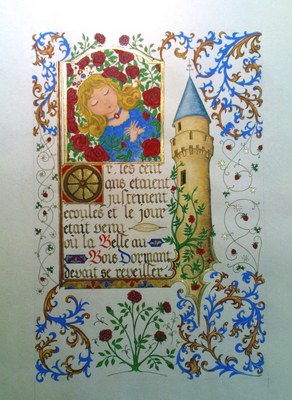 Or, les cent
ans étaient
justement
écoulés et le jour
était venu
où la Belle au
Bois Dormant
devait se réveiller.